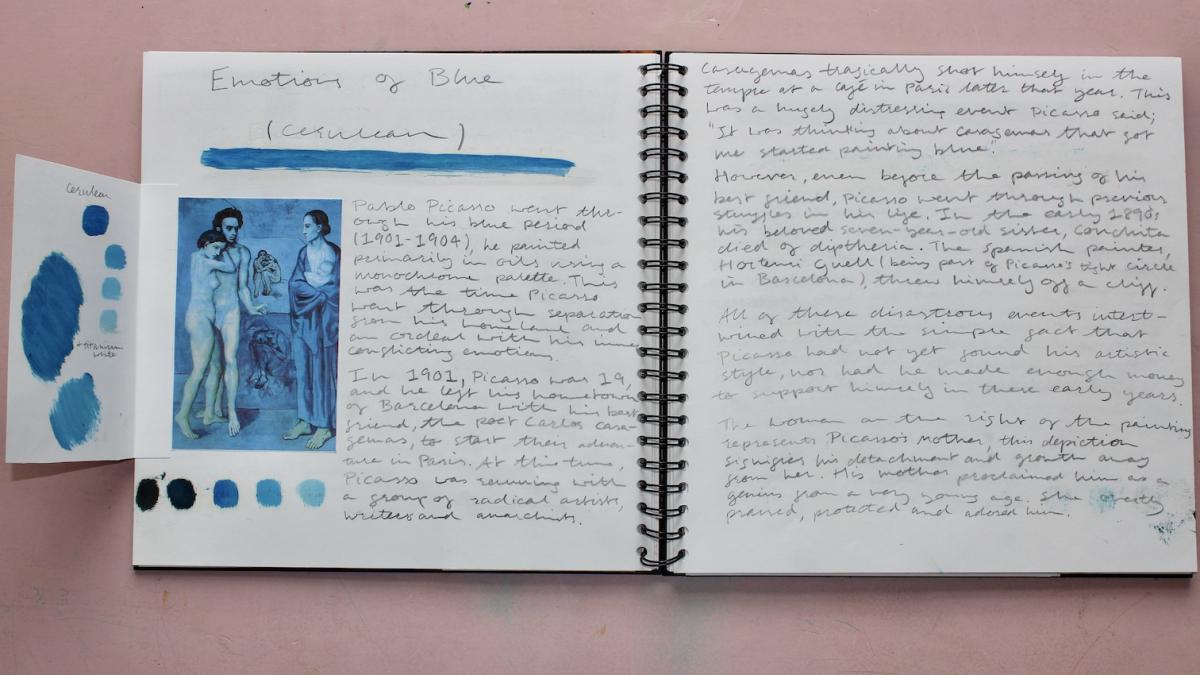 Emotions of Blue
(Cerulean)
Cerulean
+titanium
white
Pablo Picasso went thr-
ough his blue period
(1901-1904), he painted
primarily in oils using a
monochrome palette. This
was the time Picasso
went through separation
from his homeland and
an ordeal with his inner
conflicting emotions.
In 1901, Picasso was 19,
and he left his hometown
of Barcelona with his best
friend, the poet Carlos Casa-
gemas, to start their adven-
ture in Paris. At this time,
Picasso was running with
a group of radical artists,
writers and anarchists.
Casagemas tragically shot himself in the
temple at a café in Paris later that year. This
was a hugely distressing event Picasso said;
"It was thinking about Casagemas that got
me started painting blue."
However, even before the passing of his
best friend, Picasso went through previous
struggles in his life. In the early 1890s
his beloved seven-year-old sister, Conchita
died of diptheria. The Spanish painter,
Hortensi Guell (being part of Picasso's tight circle
in Barcelona), threw himself off a cliff.
All of these disastrous events intert-
wined with the simple fact that
Picasso had not yet found his artistic
style, nor had he made enough money
to support himself in these early years.
The woman on the right of the painting
represents Picasso's Mother, this depiction
signifies his detachment and growth away
from her. His mother proclaimed him as a
genius from a very young age. She
praised, protected and adored him.